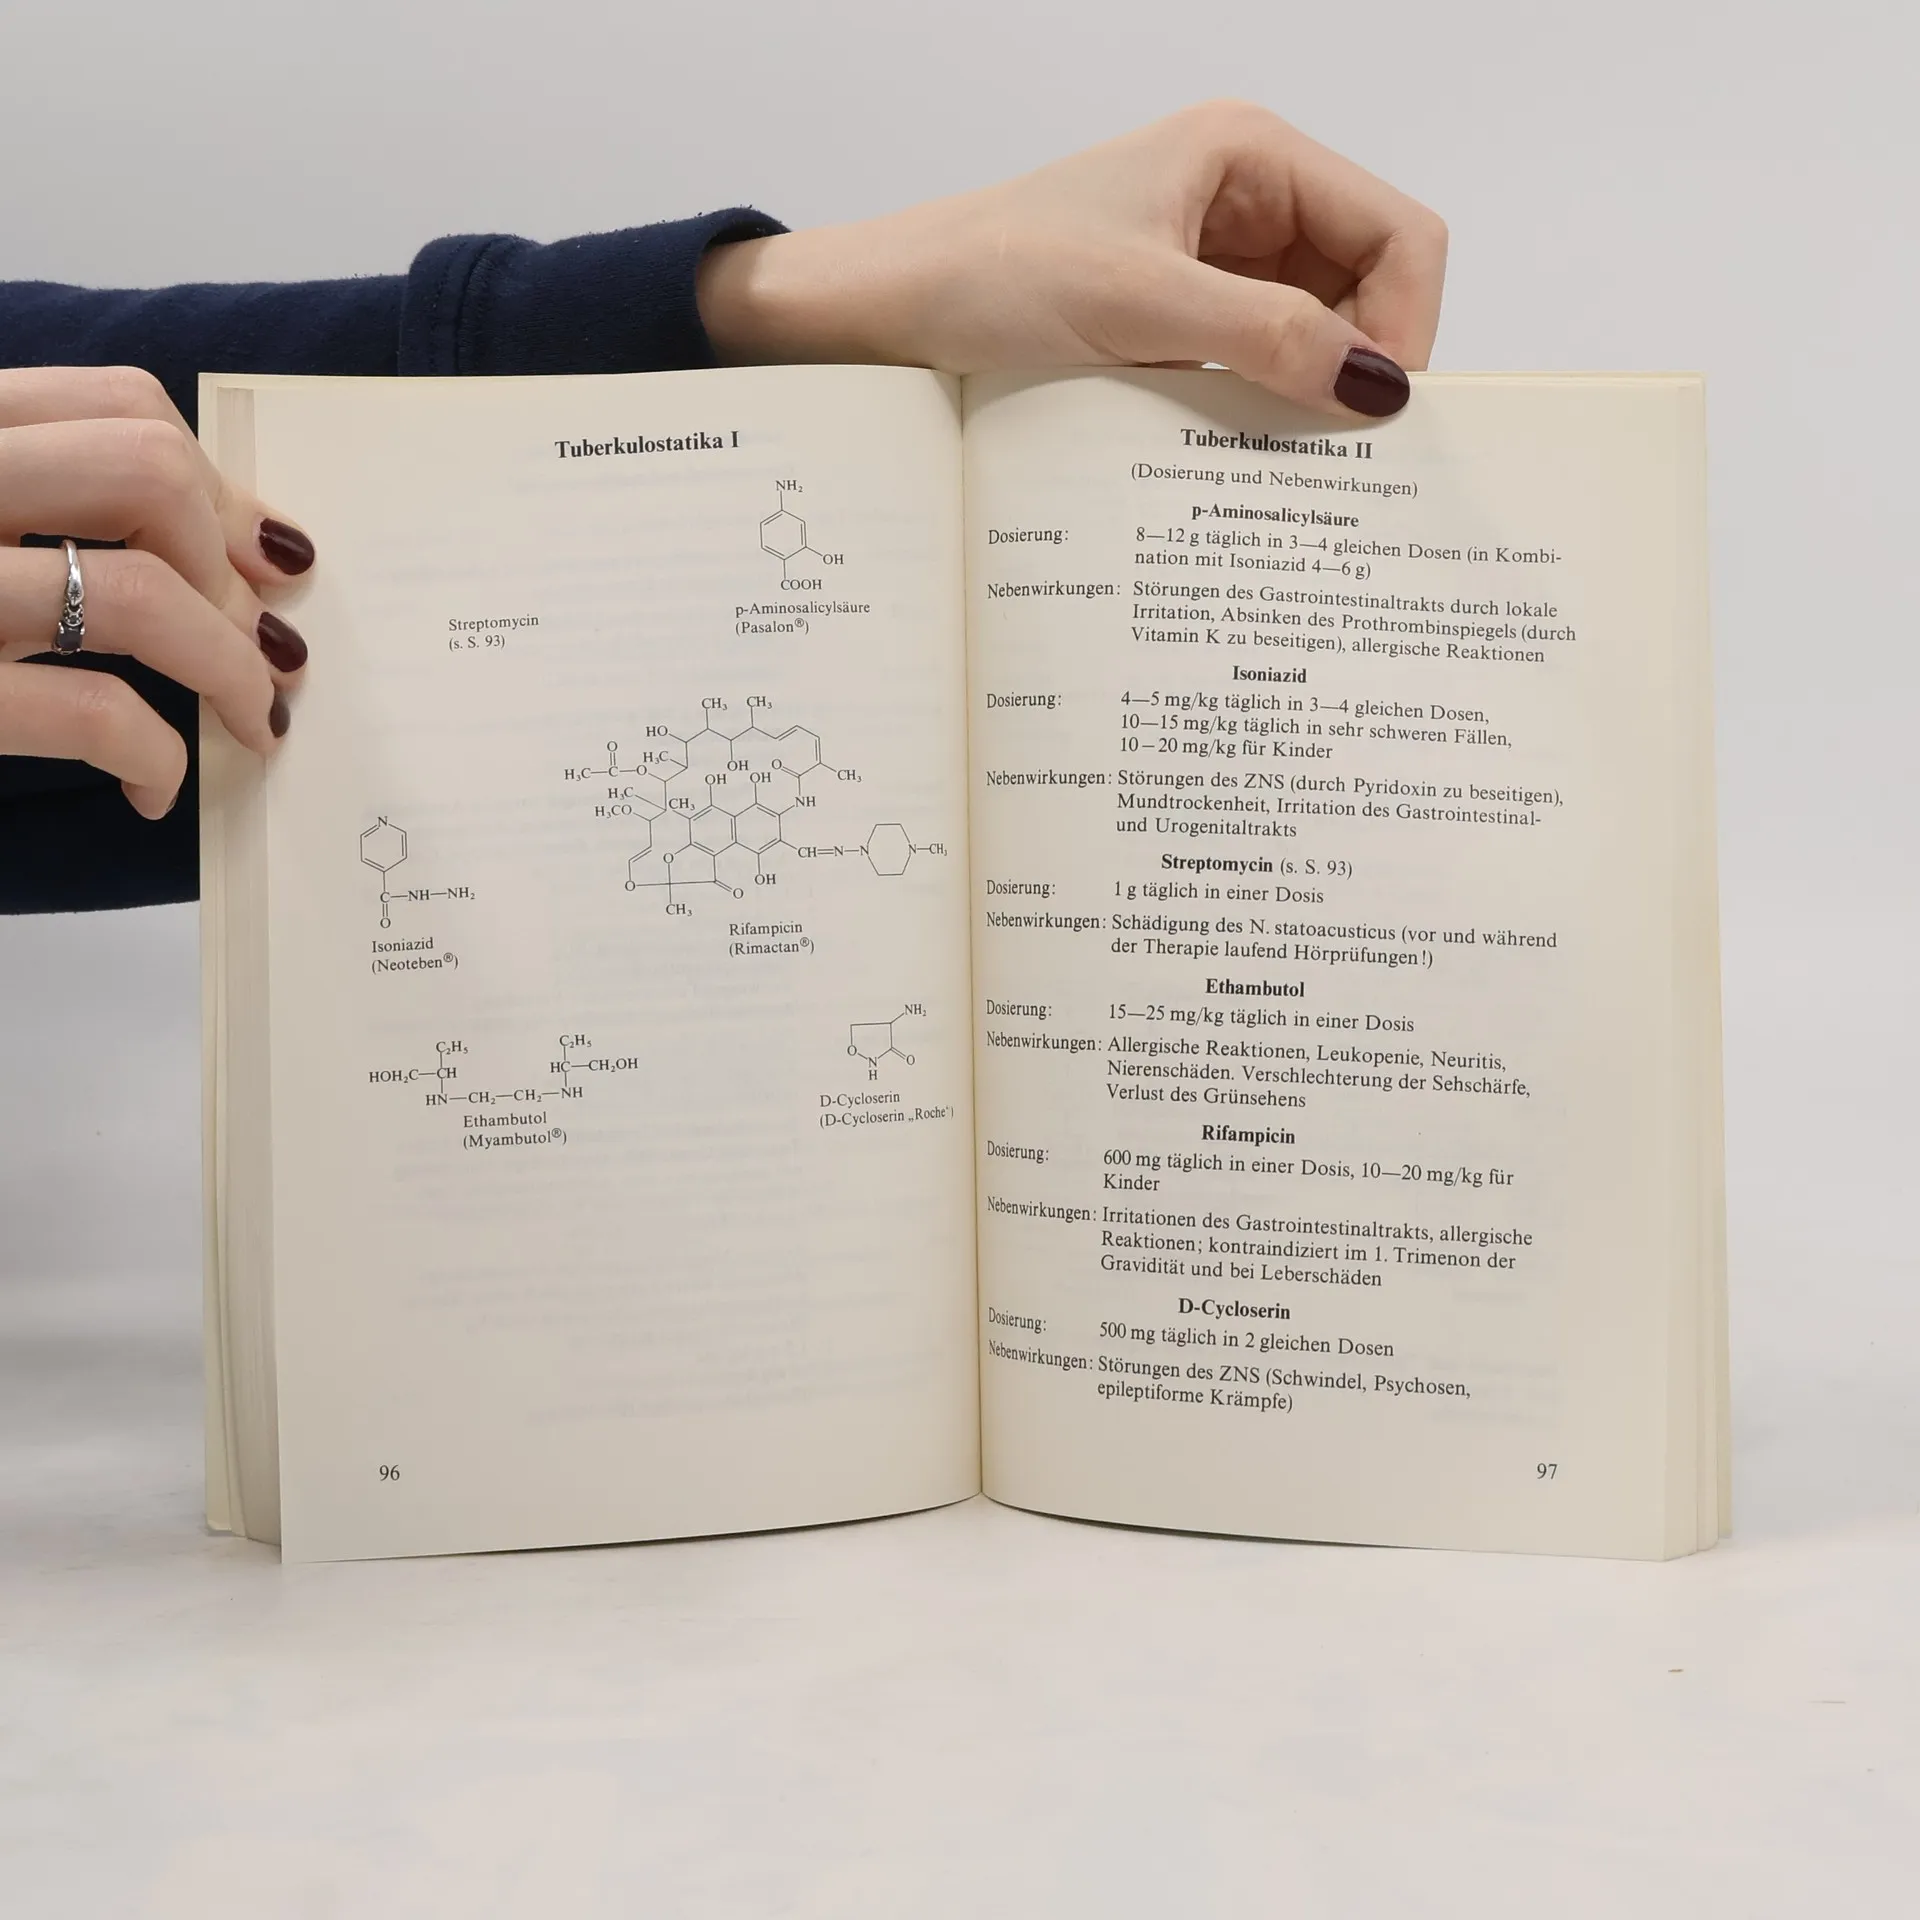 Tuberkulostatika I
NH₂
OH
COOH
p-Aminosalicylsäure
(Pasalon®)
Streptomycin
(s. S. 93)
CH₃ CH₃
HO
O H₃C OH O
H₃C—C—O OH OH CH₃
H₃C CH₃ NH
H₃CO
O CH=N—N N—CH₃
O OH
O
CH₃
Rifampicin
(Rimactan®)
N
C—NH—NH₂
O
Isoniazid
(Neoteben®)
C₂H₅ C₂H₅
HOH₂C—CH HC—CH₂OH
HN—CH₂—CH₂—NH
Ethambutol
(Myambutol®)
NH₂
O N O
H
D-Cycloserin
(D-Cycloserin „Roche“)
96
Tuberkulostatika II
(Dosierung und Nebenwirkungen)
p-Aminosalicylsäure
Dosierung: 8—12 g täglich in 3—4 gleichen Dosen (in Kombi-
nation mit Isoniazid 4—6 g)
Nebenwirkungen: Störungen des Gastrointestinaltrakts durch lokale
Irritation, Absinken des Prothrombinspiegels (durch
Vitamin K zu beseitigen), allergische Reaktionen
Isoniazid
Dosierung: 4—5 mg/kg täglich in 3—4 gleichen Dosen,
10—15 mg/kg täglich in sehr schweren Fällen,
10—20 mg/kg für Kinder
Nebenwirkungen: Störungen des ZNS (durch Pyridoxin zu beseitigen),
Mundtrockenheit, Irritation des Gastrointestinal-
und Urogenitaltrakts
Streptomycin (s. S. 93)
Dosierung: 1 g täglich in einer Dosis
Nebenwirkungen: Schädigung des N. statoacusticus (vor und während
der Therapie laufend Hörprüfungen!)
Ethambutol
Dosierung: 15—25 mg/kg täglich in einer Dosis
Nebenwirkungen: Allergische Reaktionen, Leukopenie, Neuritis,
Nierenschäden. Verschlechterung der Sehschärfe,
Verlust des Grünsehens
Rifampicin
Dosierung: 600 mg täglich in einer Dosis, 10—20 mg/kg für
Kinder
Nebenwirkungen: Irritationen des Gastrointestinaltrakts, allergische
Reaktionen; kontraindiziert im 1. Trimenon der
Gravidität und bei Leberschäden
D-Cycloserin
Dosierung: 500 mg täglich in 2 gleichen Dosen
Nebenwirkungen: Störungen des ZNS (Schwindel, Psychosen,
epileptiforme Krämpfe)
97